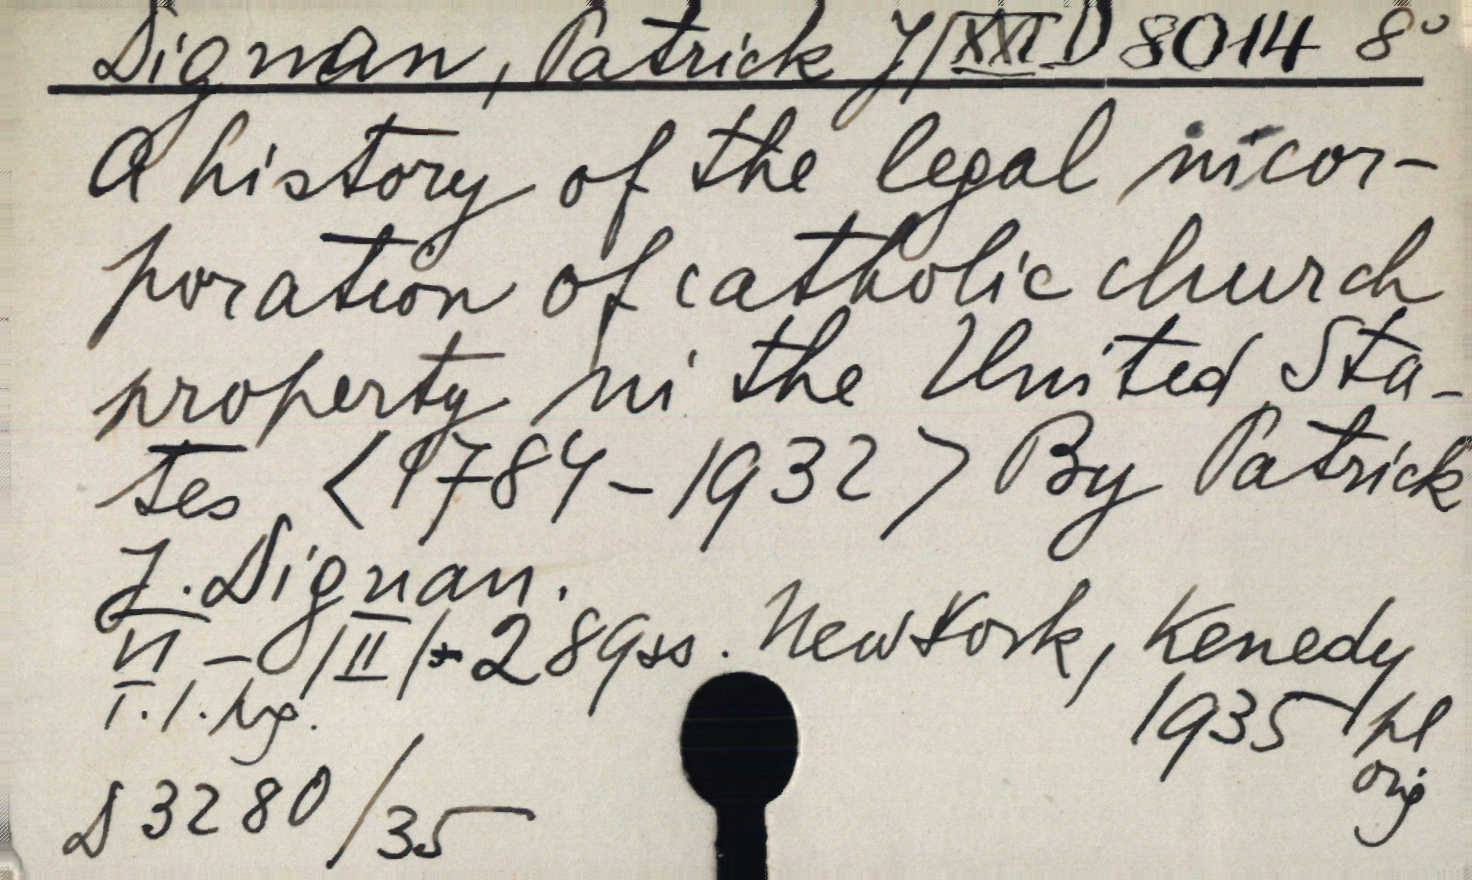 Dignan, Patrick J/XXI D 8014 8°
A history of the legal incor-
poration of catholic church
property in the United Sta-
tes <1784-1932> By Patrick
J. Dignan.
VI - /II/+289ss. New York, Kenedy
1935 pl
orig
D 3280/35